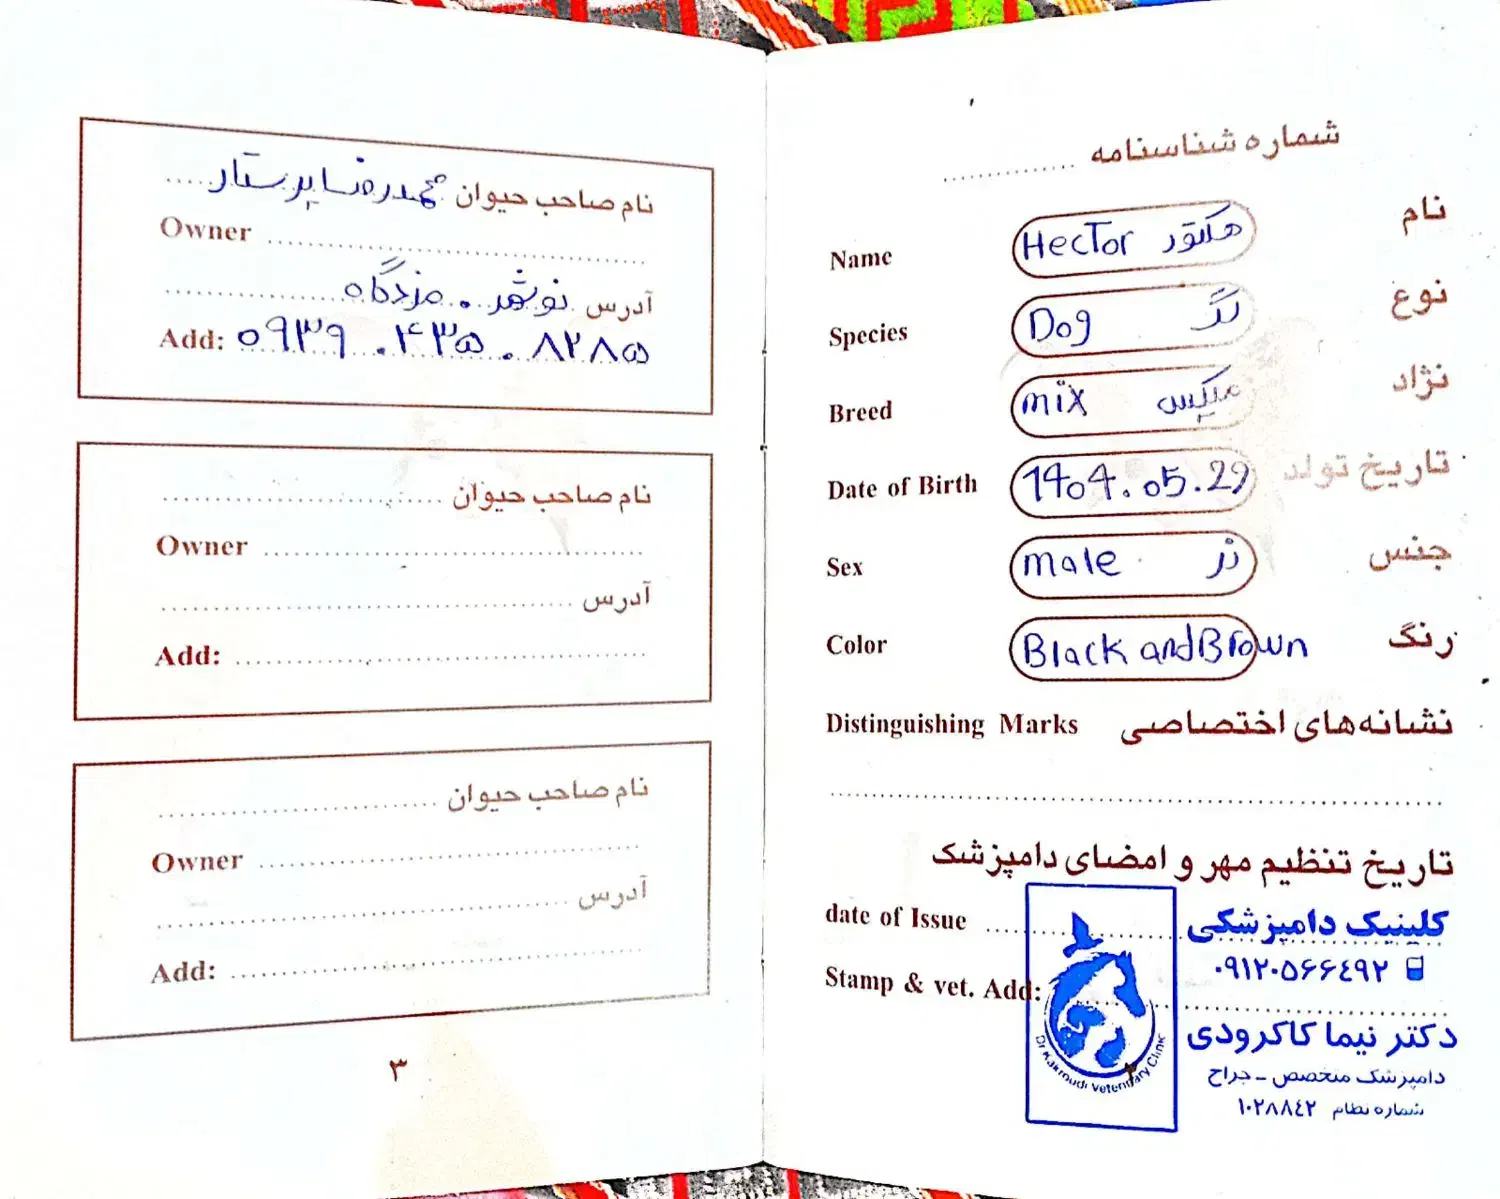 شماره شناسنامه ....................
نام هکتور HecTor Name
نوع سگ Dog Species
نژاد میکس mix Breed
تاریخ تولد 1404.05.29 Date of Birth
جنس نر male Sex
رنگ Black and Brown Color
نشانه‌های اختصاصی Distinguishing Marks
تاریخ تنظیم مهر و امضای دامپزشک
date of Issue
کلینیک دامپزشکی
۰۹۱۲۰۵۶۶۴۹۲
Stamp & vet. Add:
دکتر نیما کاکرودی
دامپزشک متخصص - جراح
شماره نظام ۱۰۲۸۸۴۲
Dr Kakroudi Veterinary Clinic
۲
نام صاحب حیوان محمدرضا پرستار
Owner
آدرس نوشهر . مزدگاه
Add: ۰۹۳۹ . ۴۳۵ . ۸۲۸۵
نام صاحب حیوان
Owner
آدرس
Add:
نام صاحب حیوان
Owner
آدرس
Add:
۳